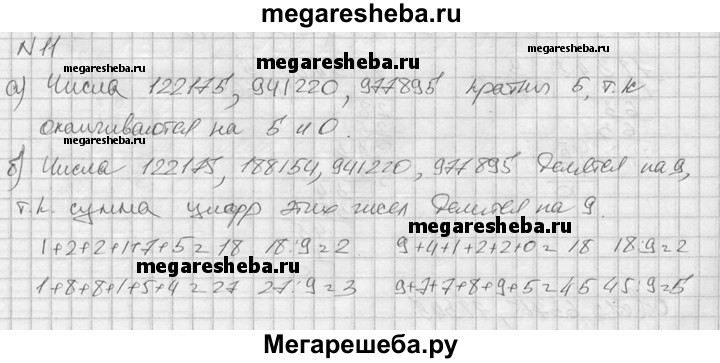 megaresheba.ru
N 11
megaresheba.ru
megaresheba.ru
а) Числа 122175, 941220, 977895 кратны 5, т.к
оканчиваются на 5 и 0.
megaresheba.ru
б) Числа 122175, 188154, 941220, 977895 делятся на 9,
т.к. сумма цифр этих чисел делится на 9.
megaresheba.ru
1+2+2+1+7+5=18 18:9=2 9+4+1+2+2+0=18 18:9=2
megaresheba.ru
1+8+8+1+5+4=27 27:9=3 9+7+7+8+9+5=45 45:9=5
megaresheba.ru
Мегарешеба.ру